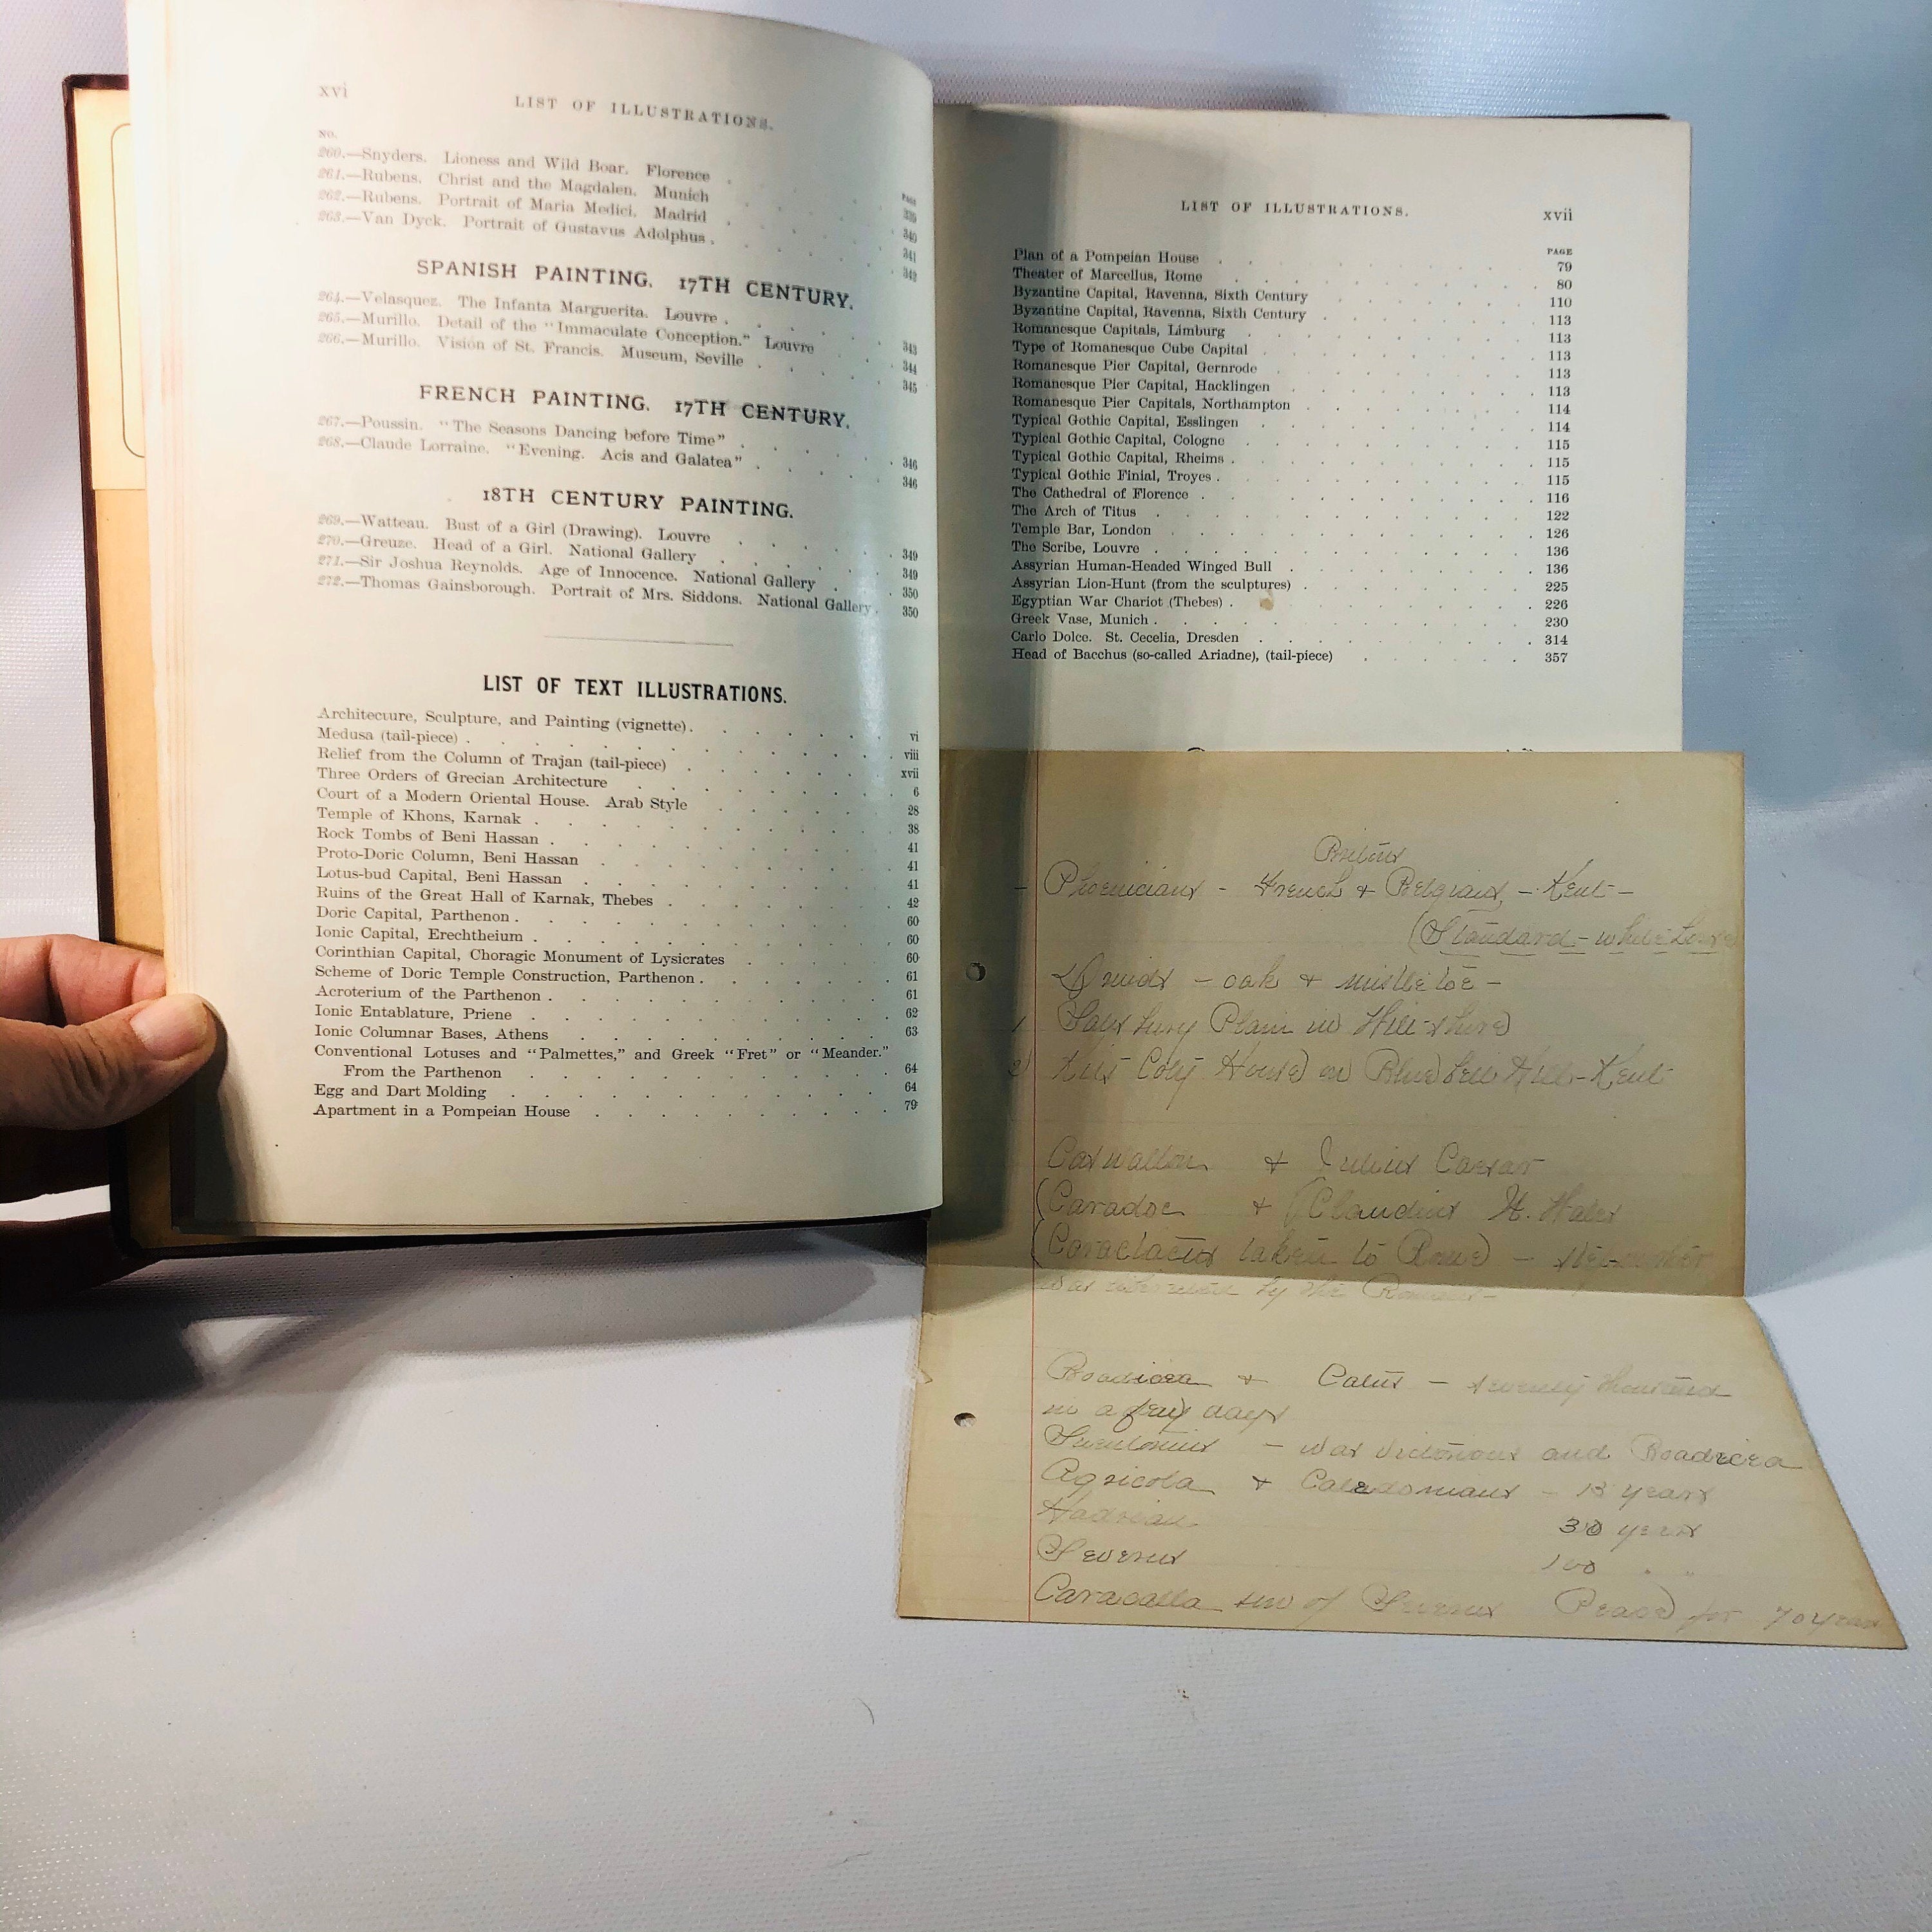 xvi
LIST OF ILLUSTRATIONS.
NO.
PAGE
260.—Snyders. Lioness and Wild Boar. Florence . 339
261.—Rubens. Christ and the Magdalen. Munich . 340
262.—Rubens. Portrait of Maria Medici. Madrid . 341
263.—Van Dyck. Portrait of Gustavus Adolphus . 342
SPANISH PAINTING. 17TH CENTURY.
264.—Velasquez. The Infanta Marguerita. Louvre . 343
265.—Murillo. Detail of the "Immaculate Conception." Louvre 344
266.—Murillo. Vision of St. Francis. Museum, Seville . 345
FRENCH PAINTING. 17TH CENTURY.
267.—Poussin. "The Seasons Dancing before Time" . 346
268.—Claude Lorraine. "Evening. Acis and Galatea" . 346
18TH CENTURY PAINTING.
269.—Watteau. Bust of a Girl (Drawing). Louvre . 349
270.—Greuze. Head of a Girl. National Gallery . 349
271.—Sir Joshua Reynolds. Age of Innocence. National Gallery . 350
272.—Thomas Gainsborough. Portrait of Mrs. Siddons. National Gallery . 350
LIST OF TEXT ILLUSTRATIONS.
Architecture, Sculpture, and Painting (vignette) . vi
Medusa (tail-piece) . viii
Relief from the Column of Trajan (tail-piece) . xvii
Three Orders of Grecian Architecture . 6
Court of a Modern Oriental House. Arab Style . 28
Temple of Khons, Karnak . 38
Rock Tombs of Beni Hassan . 41
Proto-Doric Column, Beni Hassan . 41
Lotus-bud Capital, Beni Hassan . 41
Ruins of the Great Hall of Karnak, Thebes . 42
Doric Capital, Parthenon . 60
Ionic Capital, Erechtheium . 60
Corinthian Capital, Choragic Monument of Lysicrates . 60
Scheme of Doric Temple Construction, Parthenon . 61
Acroterium of the Parthenon . 61
Ionic Entablature, Priene . 62
Ionic Columnar Bases, Athens . 63
Conventional Lotuses and "Palmettes," and Greek "Fret" or "Meander."
From the Parthenon . 64
Egg and Dart Molding . 64
Apartment in a Pompeian House . 79
LIST OF ILLUSTRATIONS.
xvii
PAGE
Plan of a Pompeian House . 79
Theater of Marcellus, Rome . 80
Byzantine Capital, Ravenna, Sixth Century . 110
Byzantine Capital, Ravenna, Sixth Century . 113
Romanesque Capitals, Limburg . 113
Type of Romanesque Cube Capital . 113
Romanesque Pier Capital, Gernrode . 113
Romanesque Pier Capital, Hacklingen . 113
Romanesque Pier Capitals, Northampton . 114
Typical Gothic Capital, Esslingen . 114
Typical Gothic Capital, Cologne . 115
Typical Gothic Capital, Rheims . 115
Typical Gothic Finial, Troyes . 115
The Cathedral of Florence . 116
The Arch of Titus . 122
Temple Bar, London . 126
The Scribe, Louvre . 136
Assyrian Human-Headed Winged Bull . 136
Assyrian Lion-Hunt (from the sculptures) . 225
Egyptian War Chariot (Thebes) . 226
Greek Vase, Munich . 230
Carlo Dolce. St. Cecelia, Dresden . 314
Head of Bacchus (so-called Ariadne), (tail-piece) . 357
Britons
- Phoenicians - French & Belgians - Kent -
(Standard - white horse
Druids - oak & mistletoe -
1 Salisbury Plain in
2) Kit's Coty House on Blue bell Hill - Kent
Caswallon & Julius Caesar
(Caradoc & (Claudius
(Caractacus taken to Rome) -
was by the Romans -
Boadicea & Catus - seventy thousand
in a few days
Suetonius - was victorious and Boadicea
Agricola & Caledonians - years
Hadrian 30 years
Severus 100 " "
Caracalla son of Severus Peace for 70 years